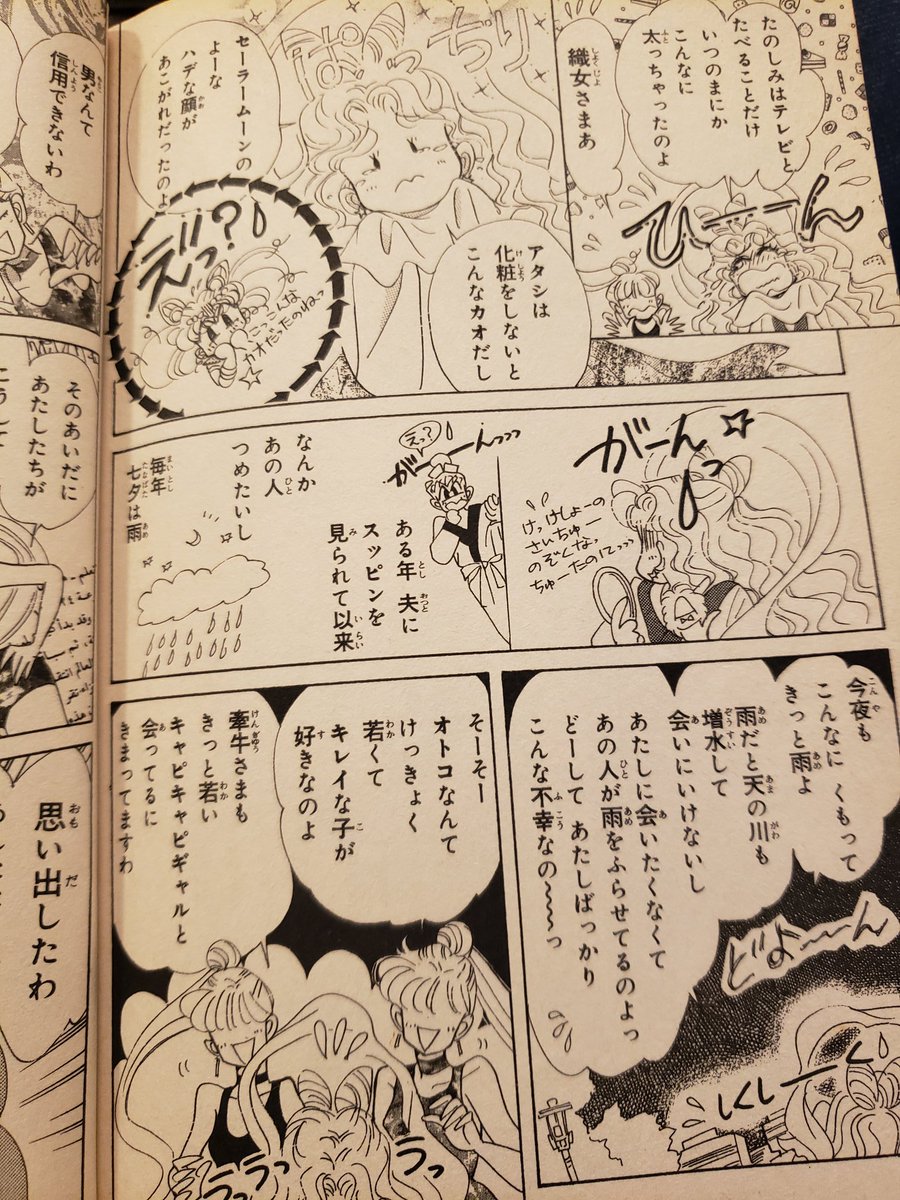 たのしみはテレビと
たべることだけ
いつのまにか
こんなに
太っちゃったのよ
織女さまあ
ひーーん
ぱっちり
アタシは
化粧をしないと
こんなカオだし
セーラームーンの
よーな
ハデな顔が
あこがれだったのよ
えっ?
こんな
カオだったのねっ
がーん
けっけしょーの
さいちゅー
のぞくなっ
ちゅーたのに
えっ?
がーーんっっっ
ある年 夫に
スッピンを
見られて以来
なんか
あの人
つめたいし
毎年
七夕は雨
今夜も
こんなに くもって
きっと雨よ
雨だと天の川も
増水して
会いにいけないし
あたしに会いたくなくて
あの人が雨をふらせてるのよっ
どーして あたしばっかり
こんな不幸なの〜〜〜っ
どよ〜〜ん
しくしーく
そーそー
オトコなんて
けっきょく
若くて
キレイな子が
好きなのよ
牽牛さまも
きっと若い
キャピキャピギャルと
会ってるに
きまってますわ
男なんて
信用できないわ
そのあいだに
あたしたちが
思い出したわ